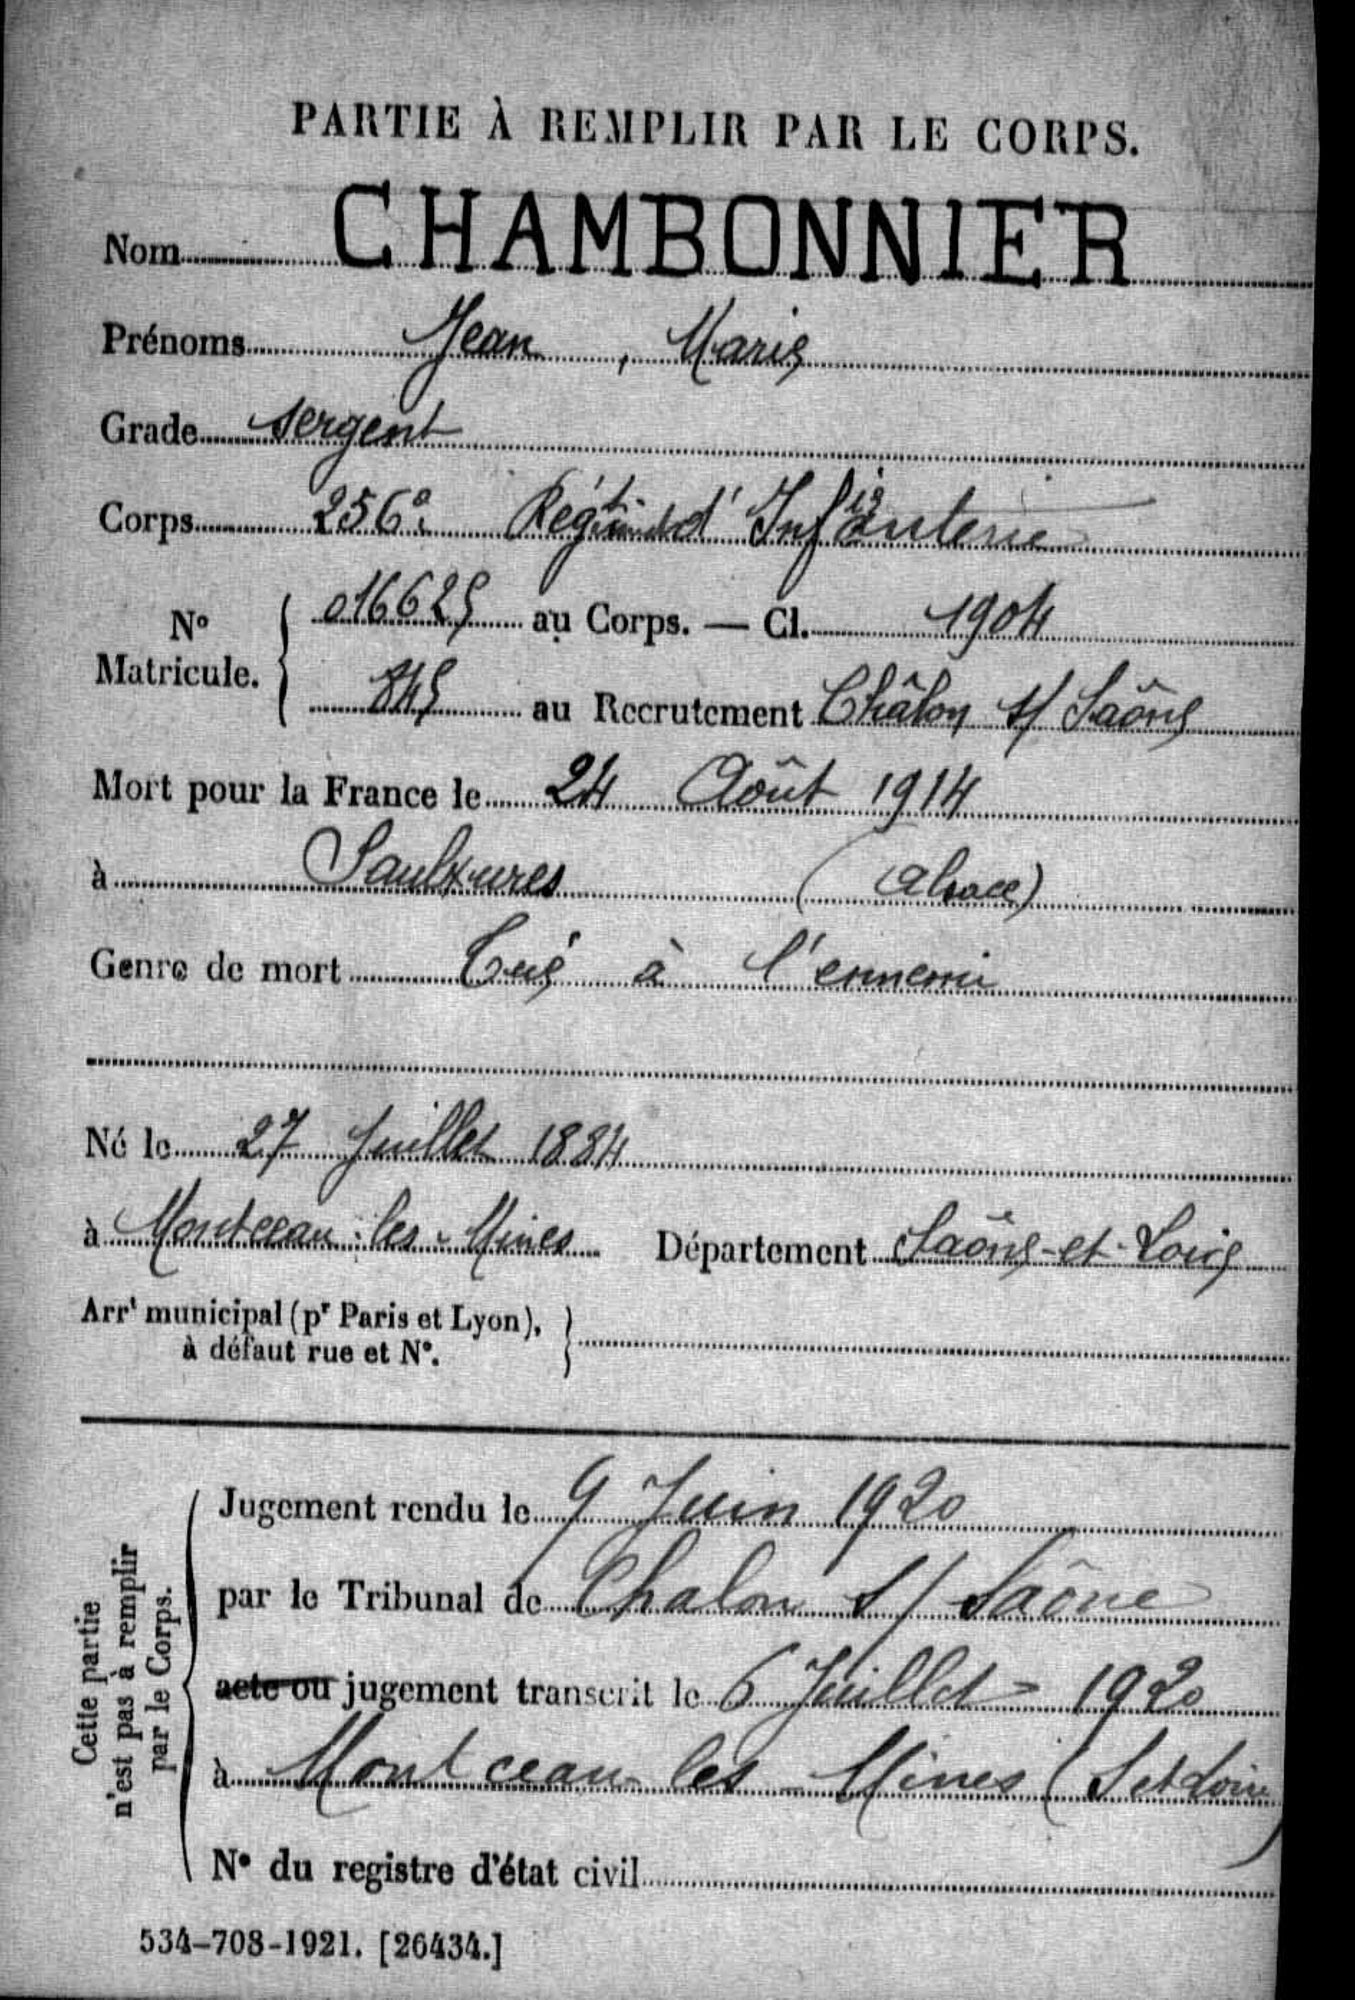 PARTIE À REMPLIR PAR LE CORPS.
Nom CHAMBONNIER
Prénoms Jean, Marie
Grade sergent
Corps 256e Régt d'Infanterie
No Matricule. 016625 au Corps. — Cl. 1904
845 au Recrutement Châlon s/ Saône
Mort pour la France le 24 Août 1914
à Saulxures (Alsace)
Genre de mort Tué à l'ennemi
Né le 27 Juillet 1884
à Montceau-les-Mines Département Saône-et-Loire
Arrt municipal (pr Paris et Lyon),
à défaut rue et No.
Cette partie
n'est pas à remplir
par le Corps.
Jugement rendu le 9 Juin 1920
par le Tribunal de Chalon s/ Saône
acte ou jugement transcrit le 6 Juillet 1920
à Montceau-les-Mines (S et Loire)
No du registre d'état civil
534-708-1921. [26434.]